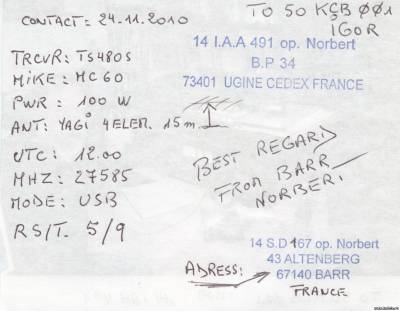 CONTACT: 24.11.2010
TO 50 KSB ØØ1
IGOR
14 I.A.A 491 op. Norbert
B.P 34
73401 UGINE CEDEX FRANCE
TRCVR: TS480S
MIKE: MC60
PWR: 100 W
ANT: YAGI 4ELEM. 15m
UTC: 12.00
MHZ: 27585
MODE: USB
RS/T. 5/9
BEST REGARD
FROM BARR
NORBERT
14 S.D 167 op. Norbert
43 ALTENBERG
ADRESS: 67140 BARR
FRANCE